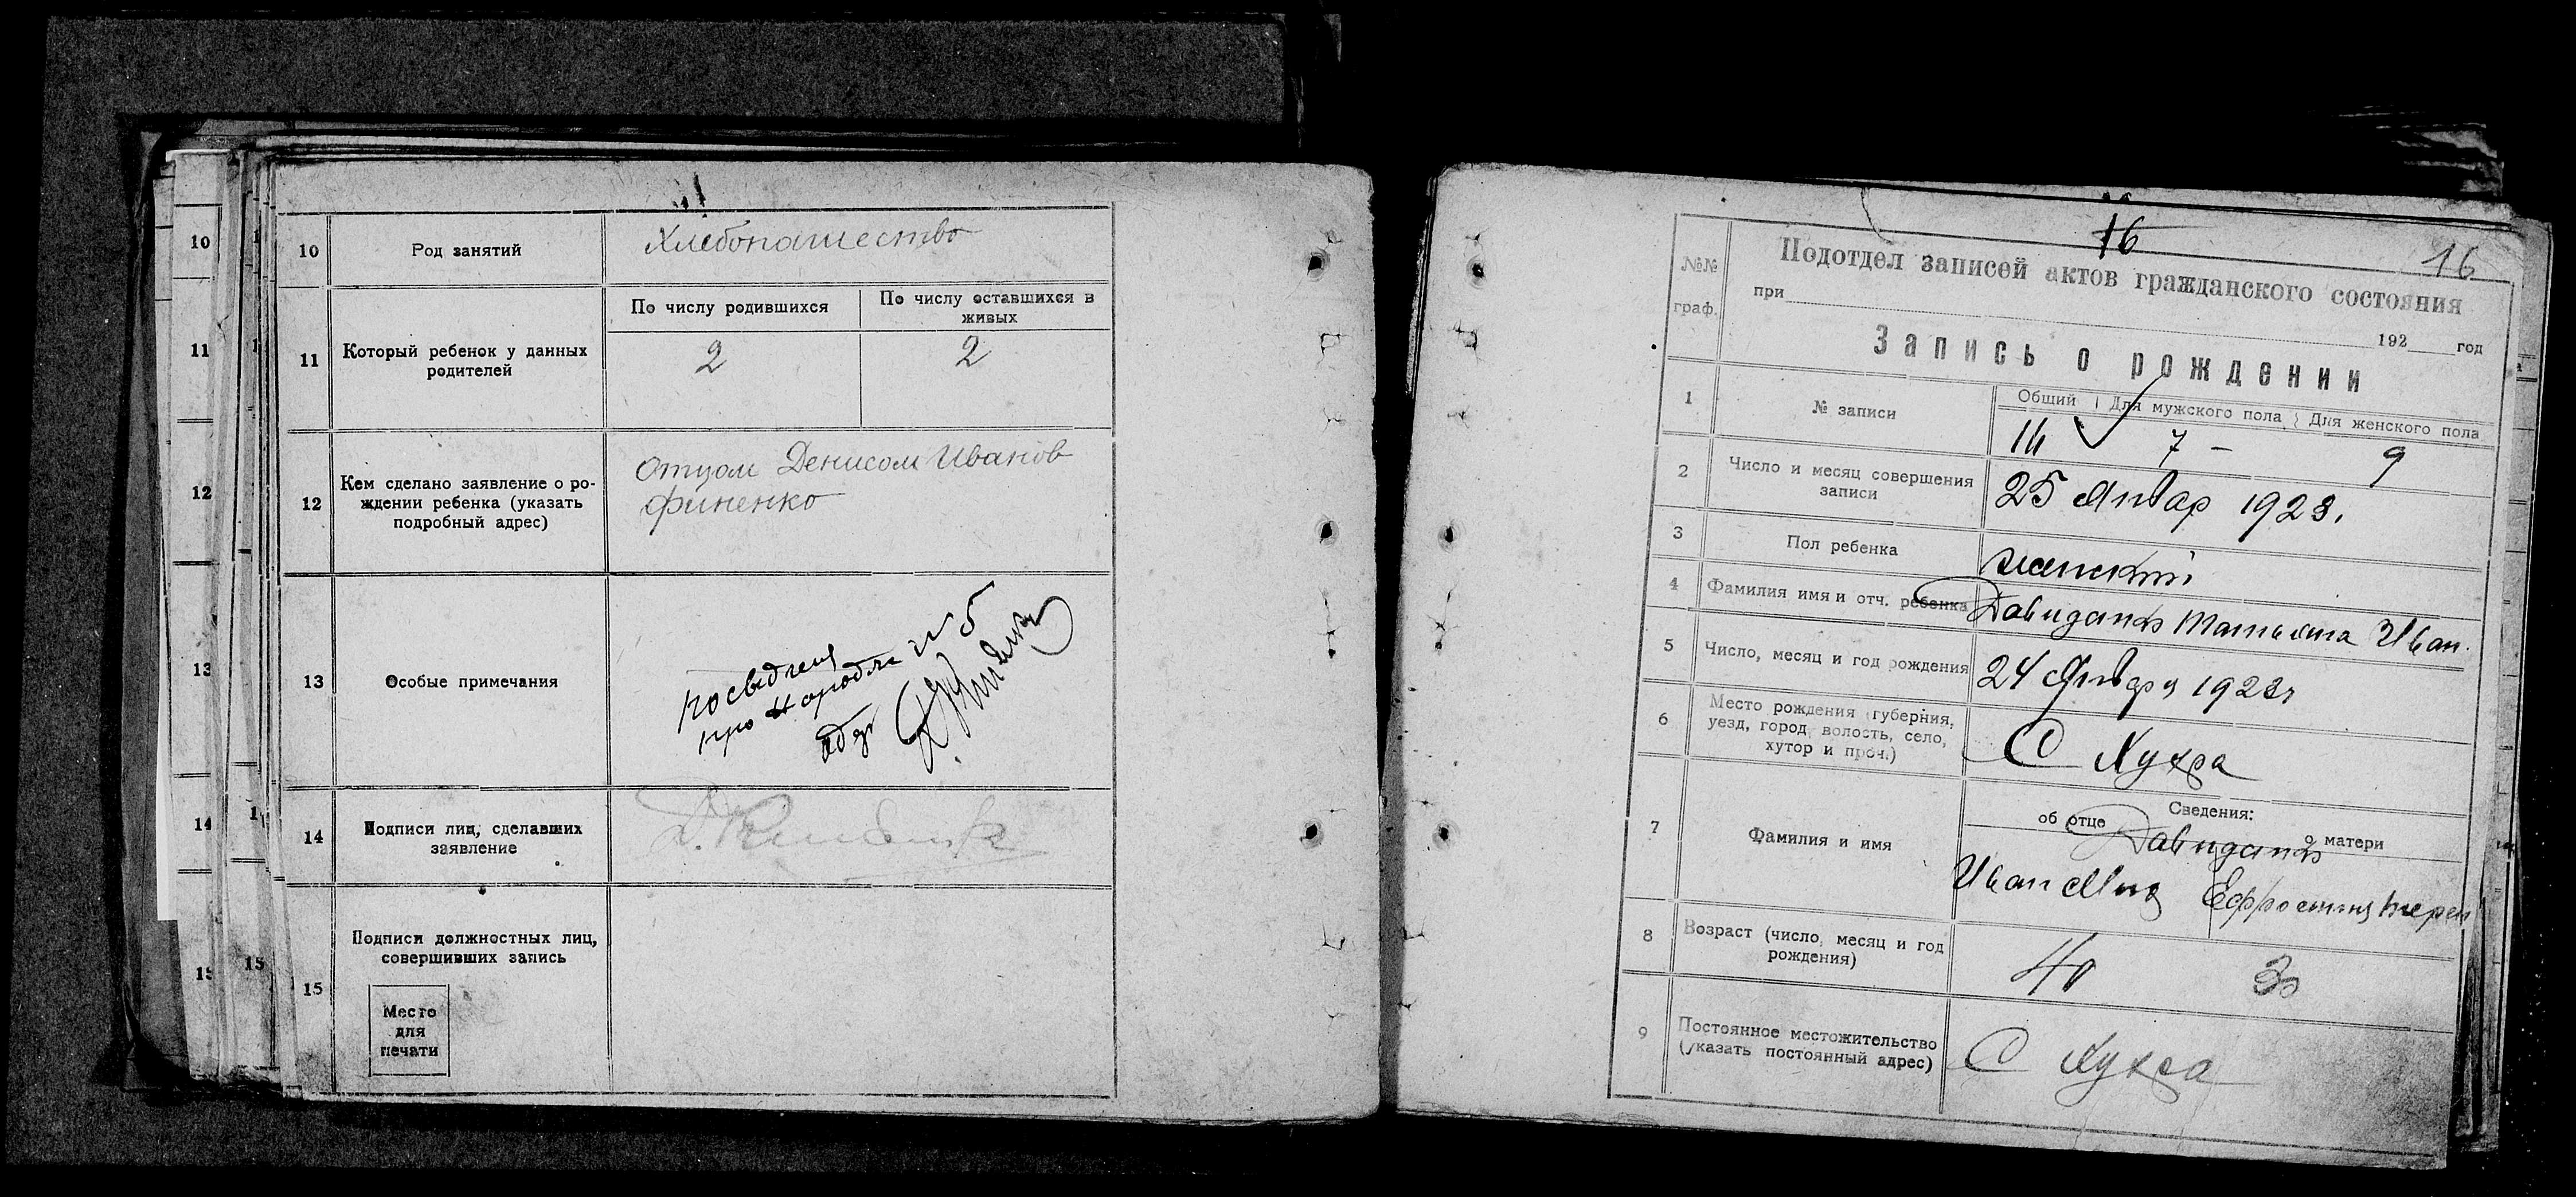 10
11
12
13
14
15
1
15
10
Род занятий
Хлебопашество
11
Который ребенок у данных
родителей
По числу родившихся
По числу оставшихся в
живых
2
2
12
Кем сделано заявление о ро-
ждении ребенка (указать
подробный адрес)
отцом Денисом Иванов
Финенко
13
Особые примечания
про народж № 5
14
Подписи лиц, сделавших
заявление
15
Подписи должностных лиц,
совершивших запись
Место
для
печати
16
16
№№
граф.
Подотдел записей актов гражданского состояния
при
192 год
Запись о рождении
1
№ записи
Общий
Для мужского пола
Для женского пола
16
7 -
9
2
Число и месяц совершения
записи
25 Январ 1923.
3
Пол ребенка
женский
4
Фамилия имя и отч. ребенка
Татьяна Иван.
5
Число, месяц и год рождения
24 Января 1923г
6
Место рождения (губерния,
уезд, город, волость, село,
хутор и проч.)
С Хухра
7
Фамилия и имя
Сведения:
об отце
о матери
Иван
Ефросиния
8
Возраст (число, месяц и год
рождения)
40
30
9
Постоянное местожительство
(указать постоянный адрес)
С Хухра